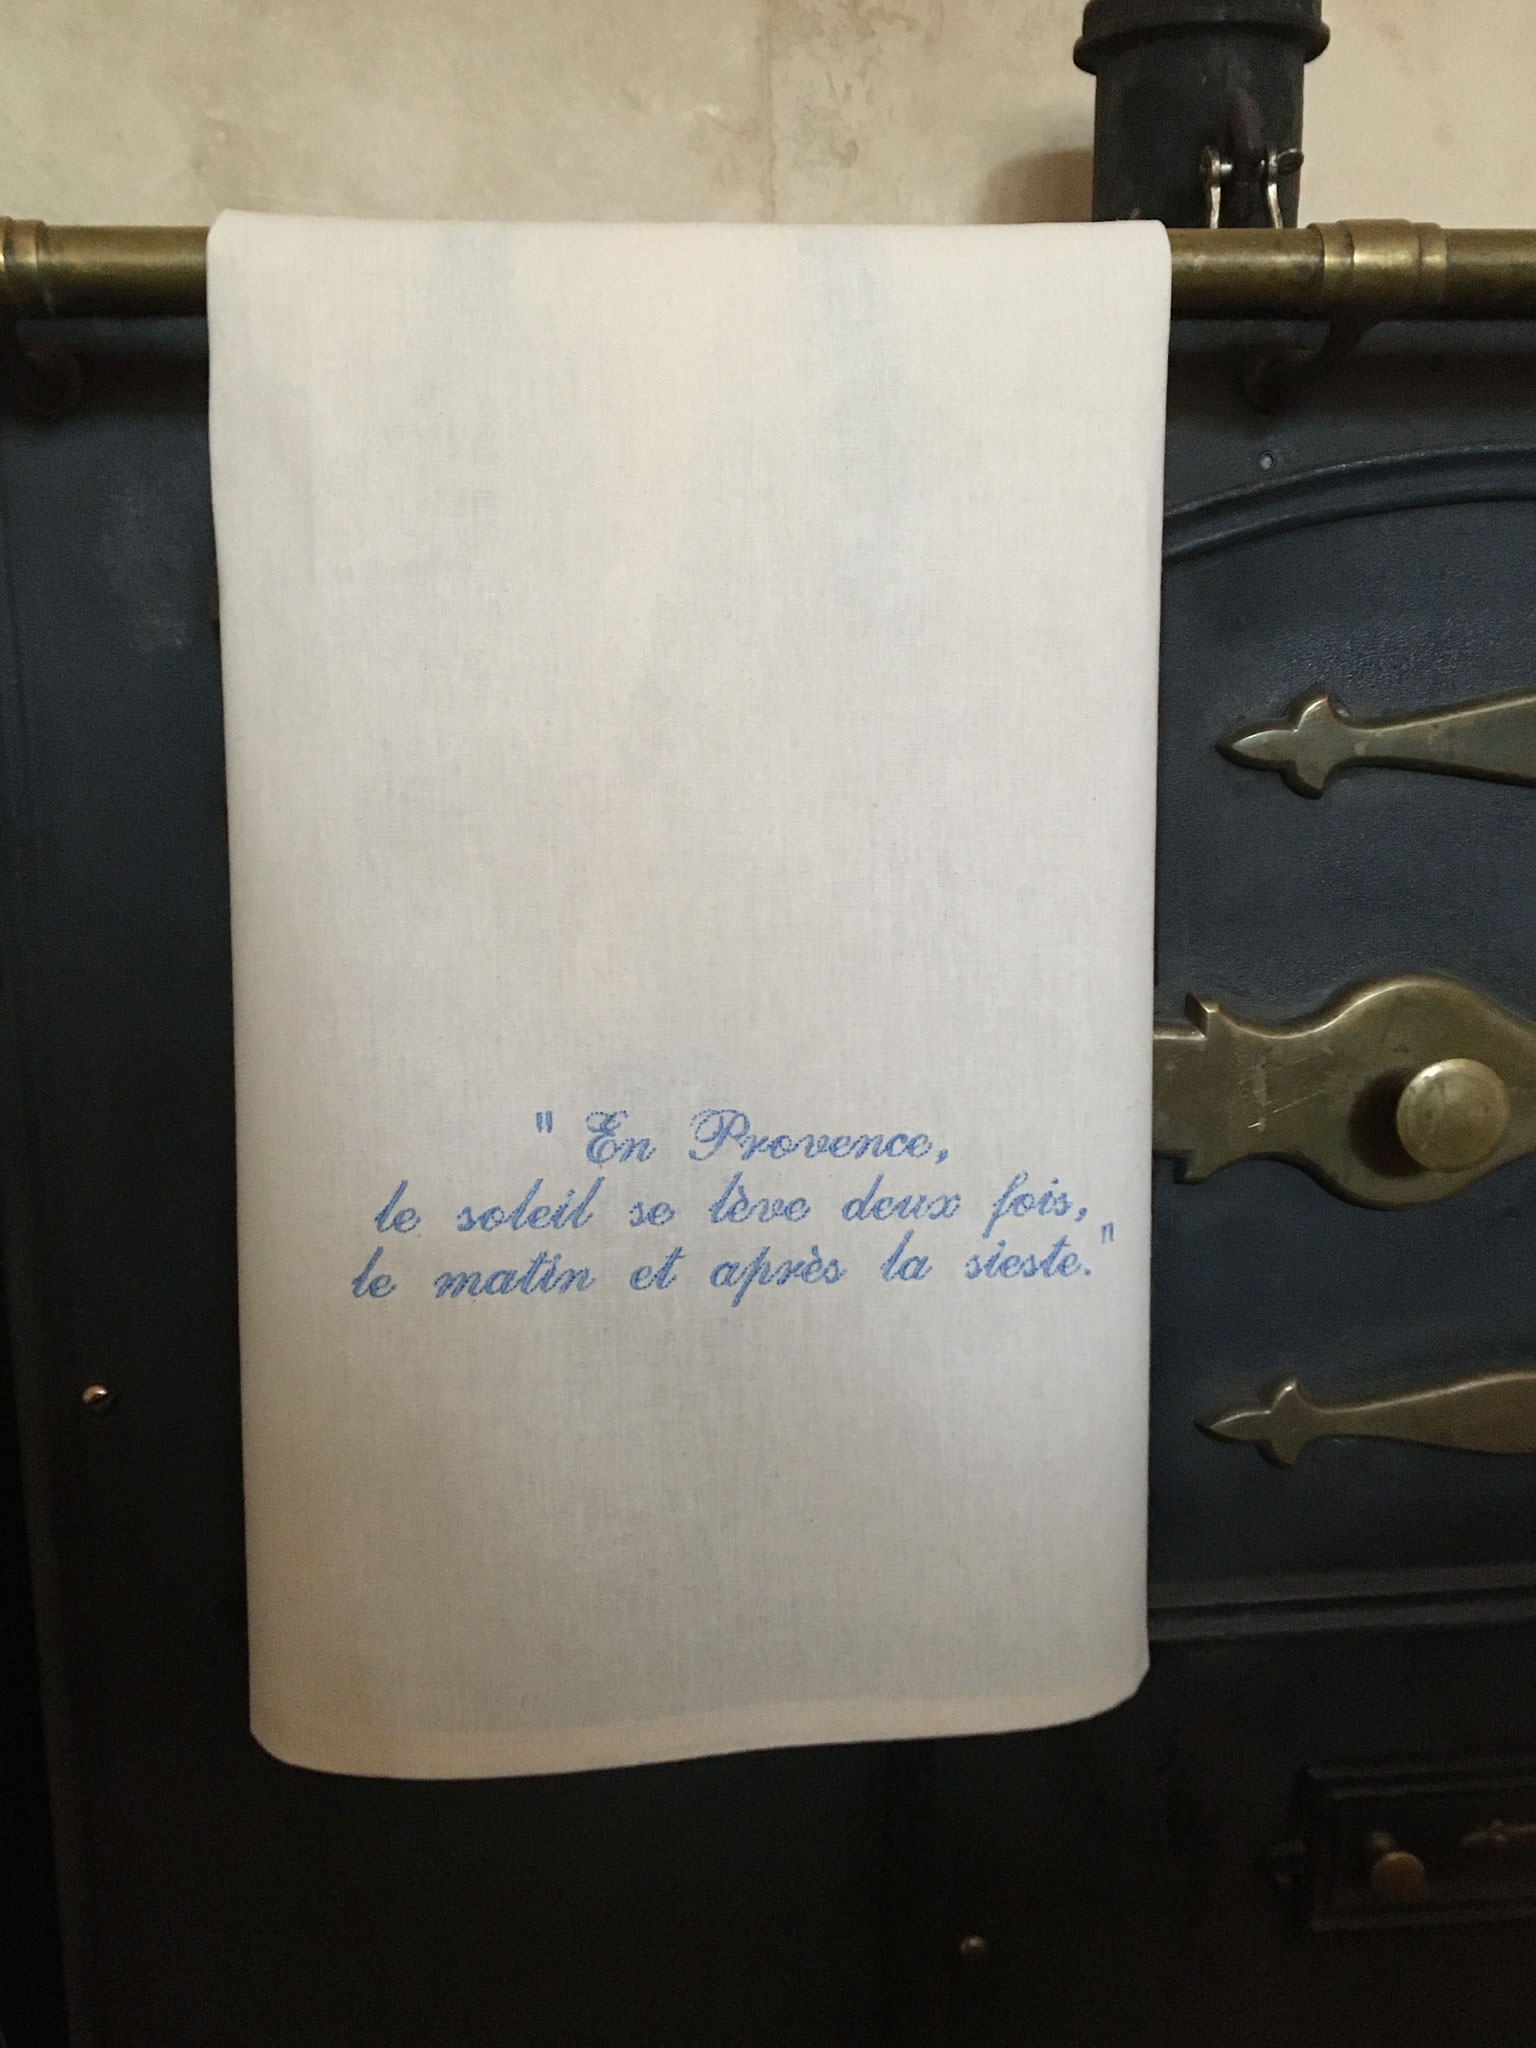 " En Provence,
le soleil se lève deux fois,
le matin et après la sieste."